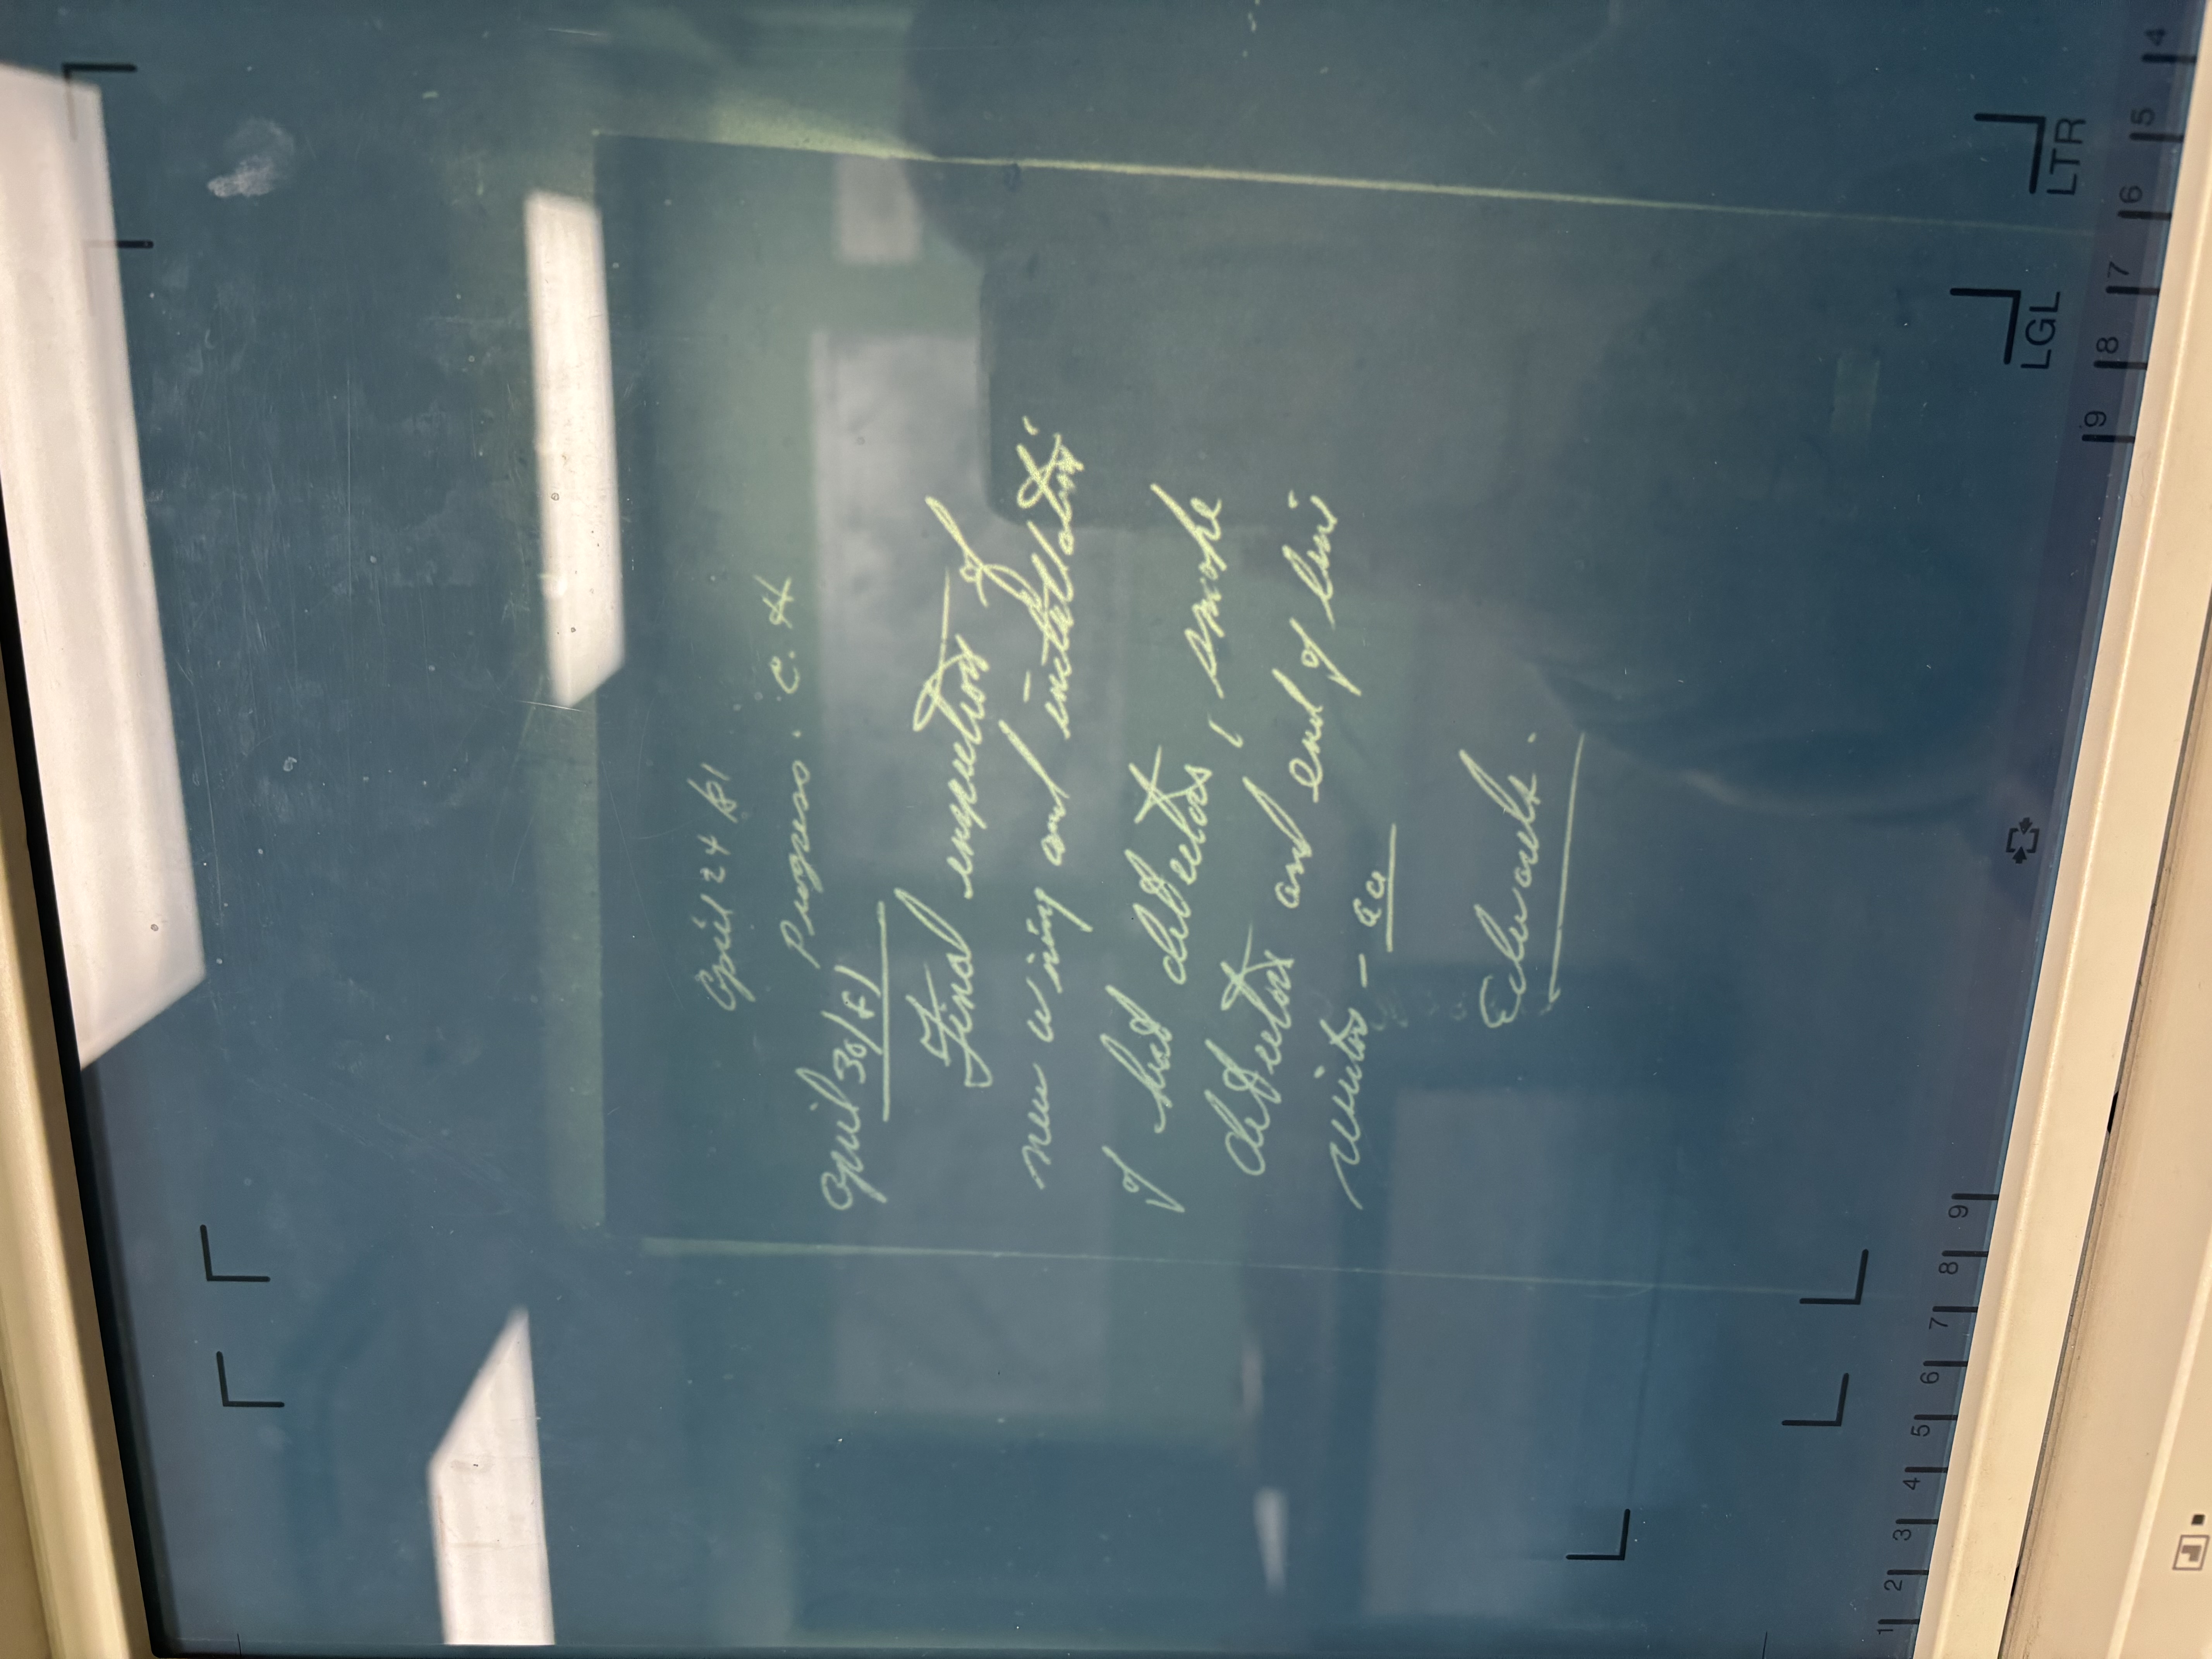 April 24/81
Progress. C. H
April 30/81
Final inspection of
new wiring and installation
of heat detectors, smoke
detectors and end of line
resistor -
Edwards.
1 2 3 4 5 6 7 8 9
LGL LTR
9 8 7 6 5 4